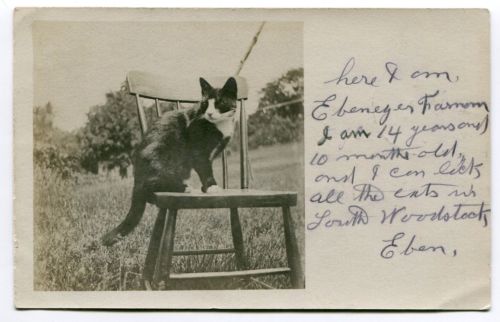 here I am,
Ebenezer Farnom
I am 14 years and
10 months old,
and I can lick
all the cats in
South Woodstock,
Eben,